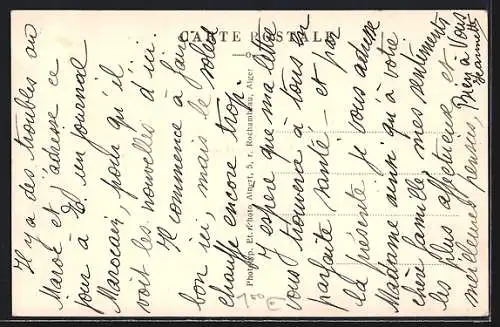 CARTE POSTALE
Il y a des troubles au
Maroc et j'adresse ce
jour à Ed un journal
Marocain, pour qu'il
voit les nouvelles d'ici.
Il commence à faire
bon ici, mais le soleil
chauffe encore trop.
J'espère que ma lettre
vous trouvera à tous en
parfaite santé - et par
la présente je vous adresse
Madame ainsi qu'à votre
chère famille, mes sentiments
les plus affectueux et
meilleures pensées, Bien à Vous
Jeannette
Photogr. Albert, 5, r. Rochambeau, Alger
700